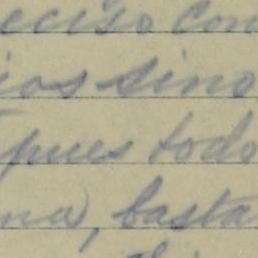 eciso con
ios sino
pues todo
na, basta